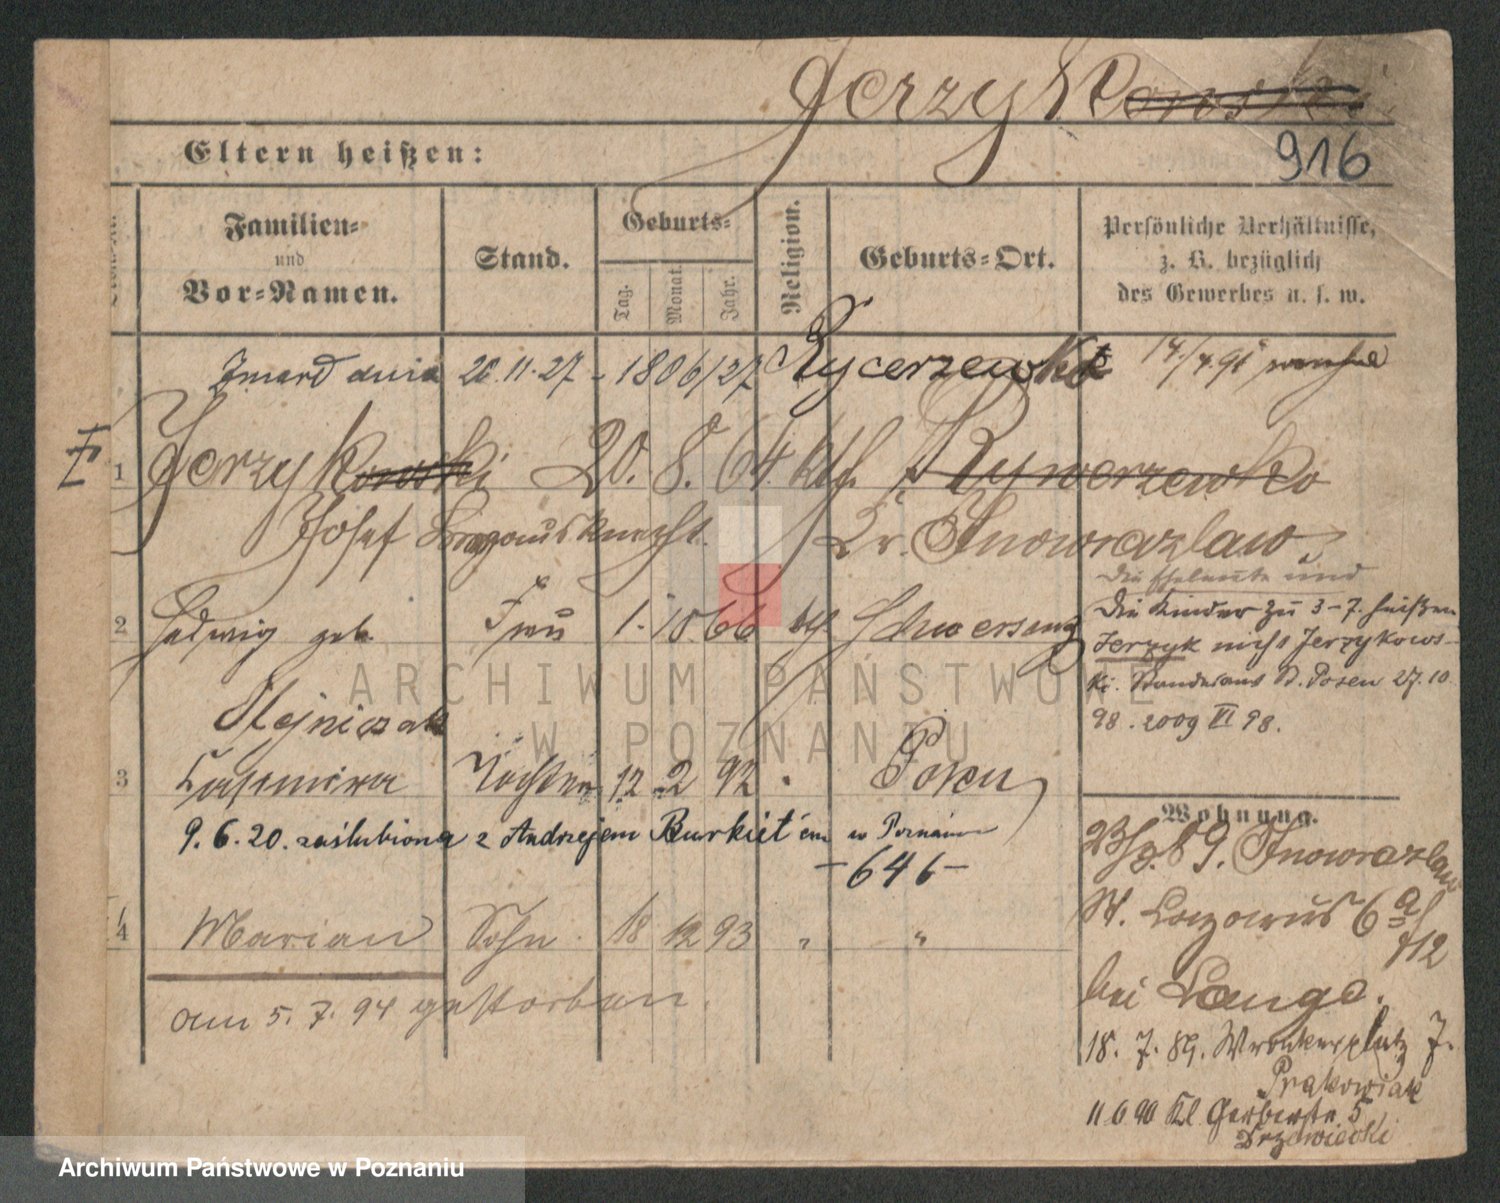 Jerzykowski
916
Eltern heißen:
Familien-
und
Vor-Namen.
Stand.
Geburts-
Tag.
Monat.
Jahr.
Religion.
Geburts-Ort.
Persönliche Verhältnisse,
z. B. bezüglich
des Gewerbes u. s. w.
Zmarł dnia 20.11.27 - 1806/27 Rycerzewko 14/4.91
1 Jerzykowski 20. 8. 64. kth. Rywerzewko
Josef Kr. Inowrazlaw
2 Hedwig geb. Frau 1. 10. 66 kth Schwersenz
Die Eheleute und
die Kinder zu 3-7. heißen
Jerzyk nicht Jerzykows-
ki. Standesamt St. Posen 27.10
98. 2009 VI 98.
Stejniczak
3 Casimira Tochter 12 2 92 " Posen
9. 6. 20. zaślubiona z Andrzejem Burkiet'em w Poznaniu
-646-
4 Marian Sohn 18 12 93 " "
am 5. 7. 94 gestorben.
Wohnung.
89. Inowrazlaw
St. Lazarus 6a
bei Lange.
18. 7. 89. Wronkerplatz 7.
Prąkowiak
11 6 90 Kl Gerberstr. 5
Drzewiecki
ARCHIWUM PAŃSTWOWE
W POZNANIU
Archiwum Państwowe w Poznaniu